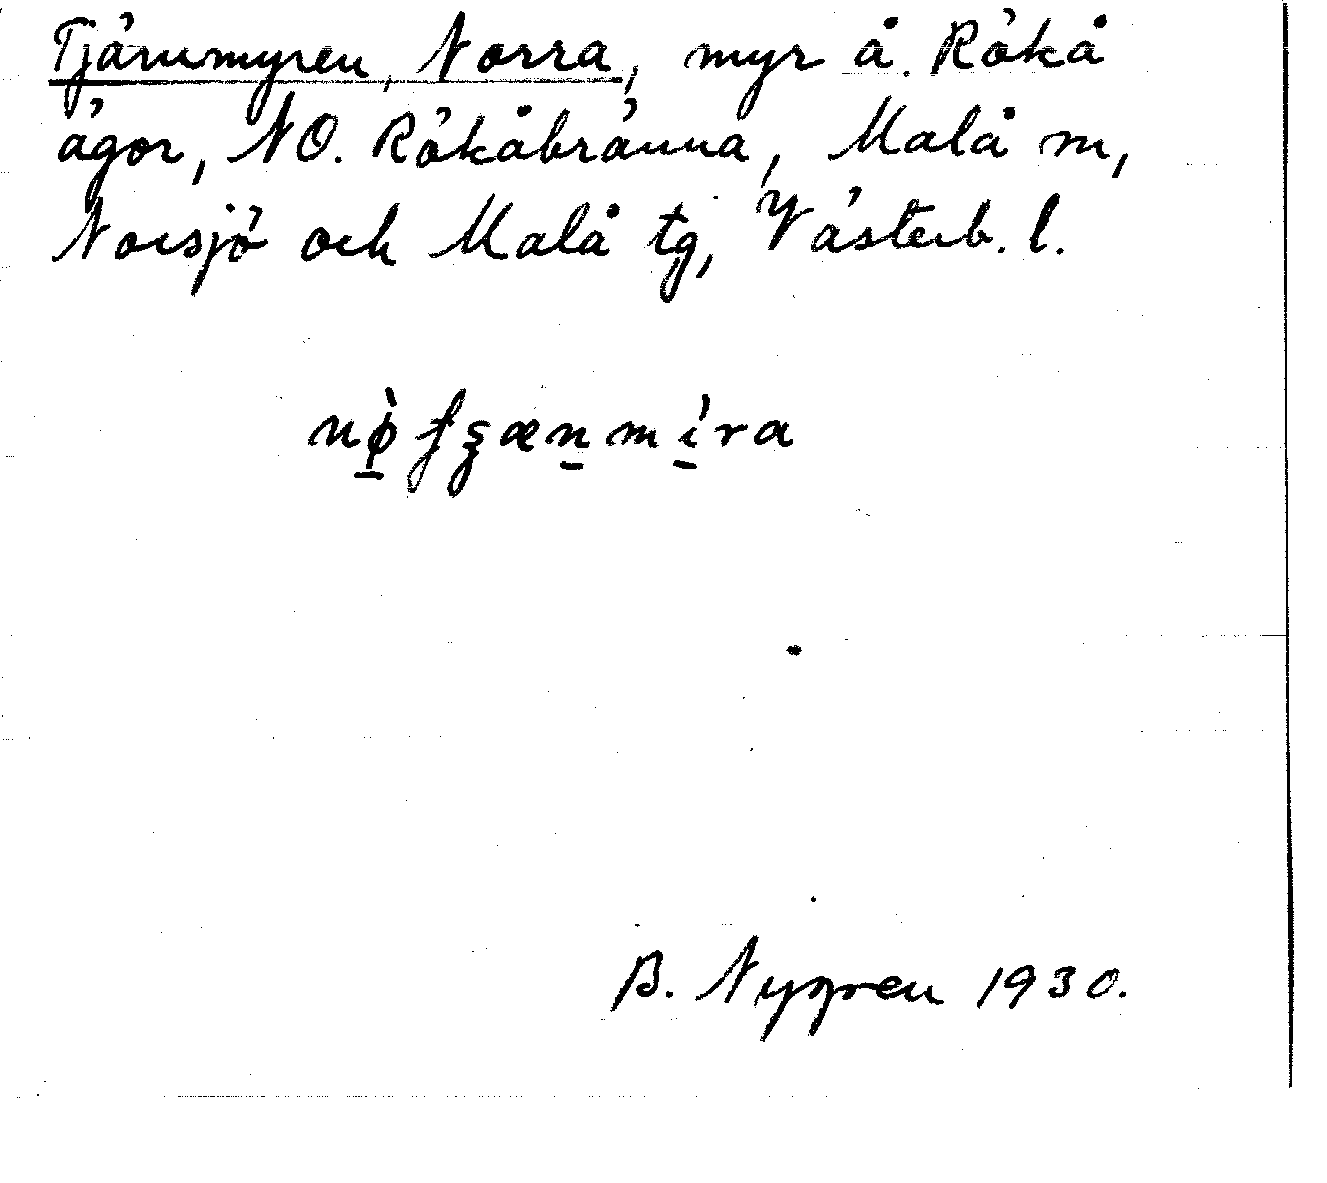 Tjärnmyren, Norra, myr å. Rökå
ägor, NO. Rökåbränna, Malå sn,
Norsjö och Malå tg, Västerb. l.
B. Nygren 1930.